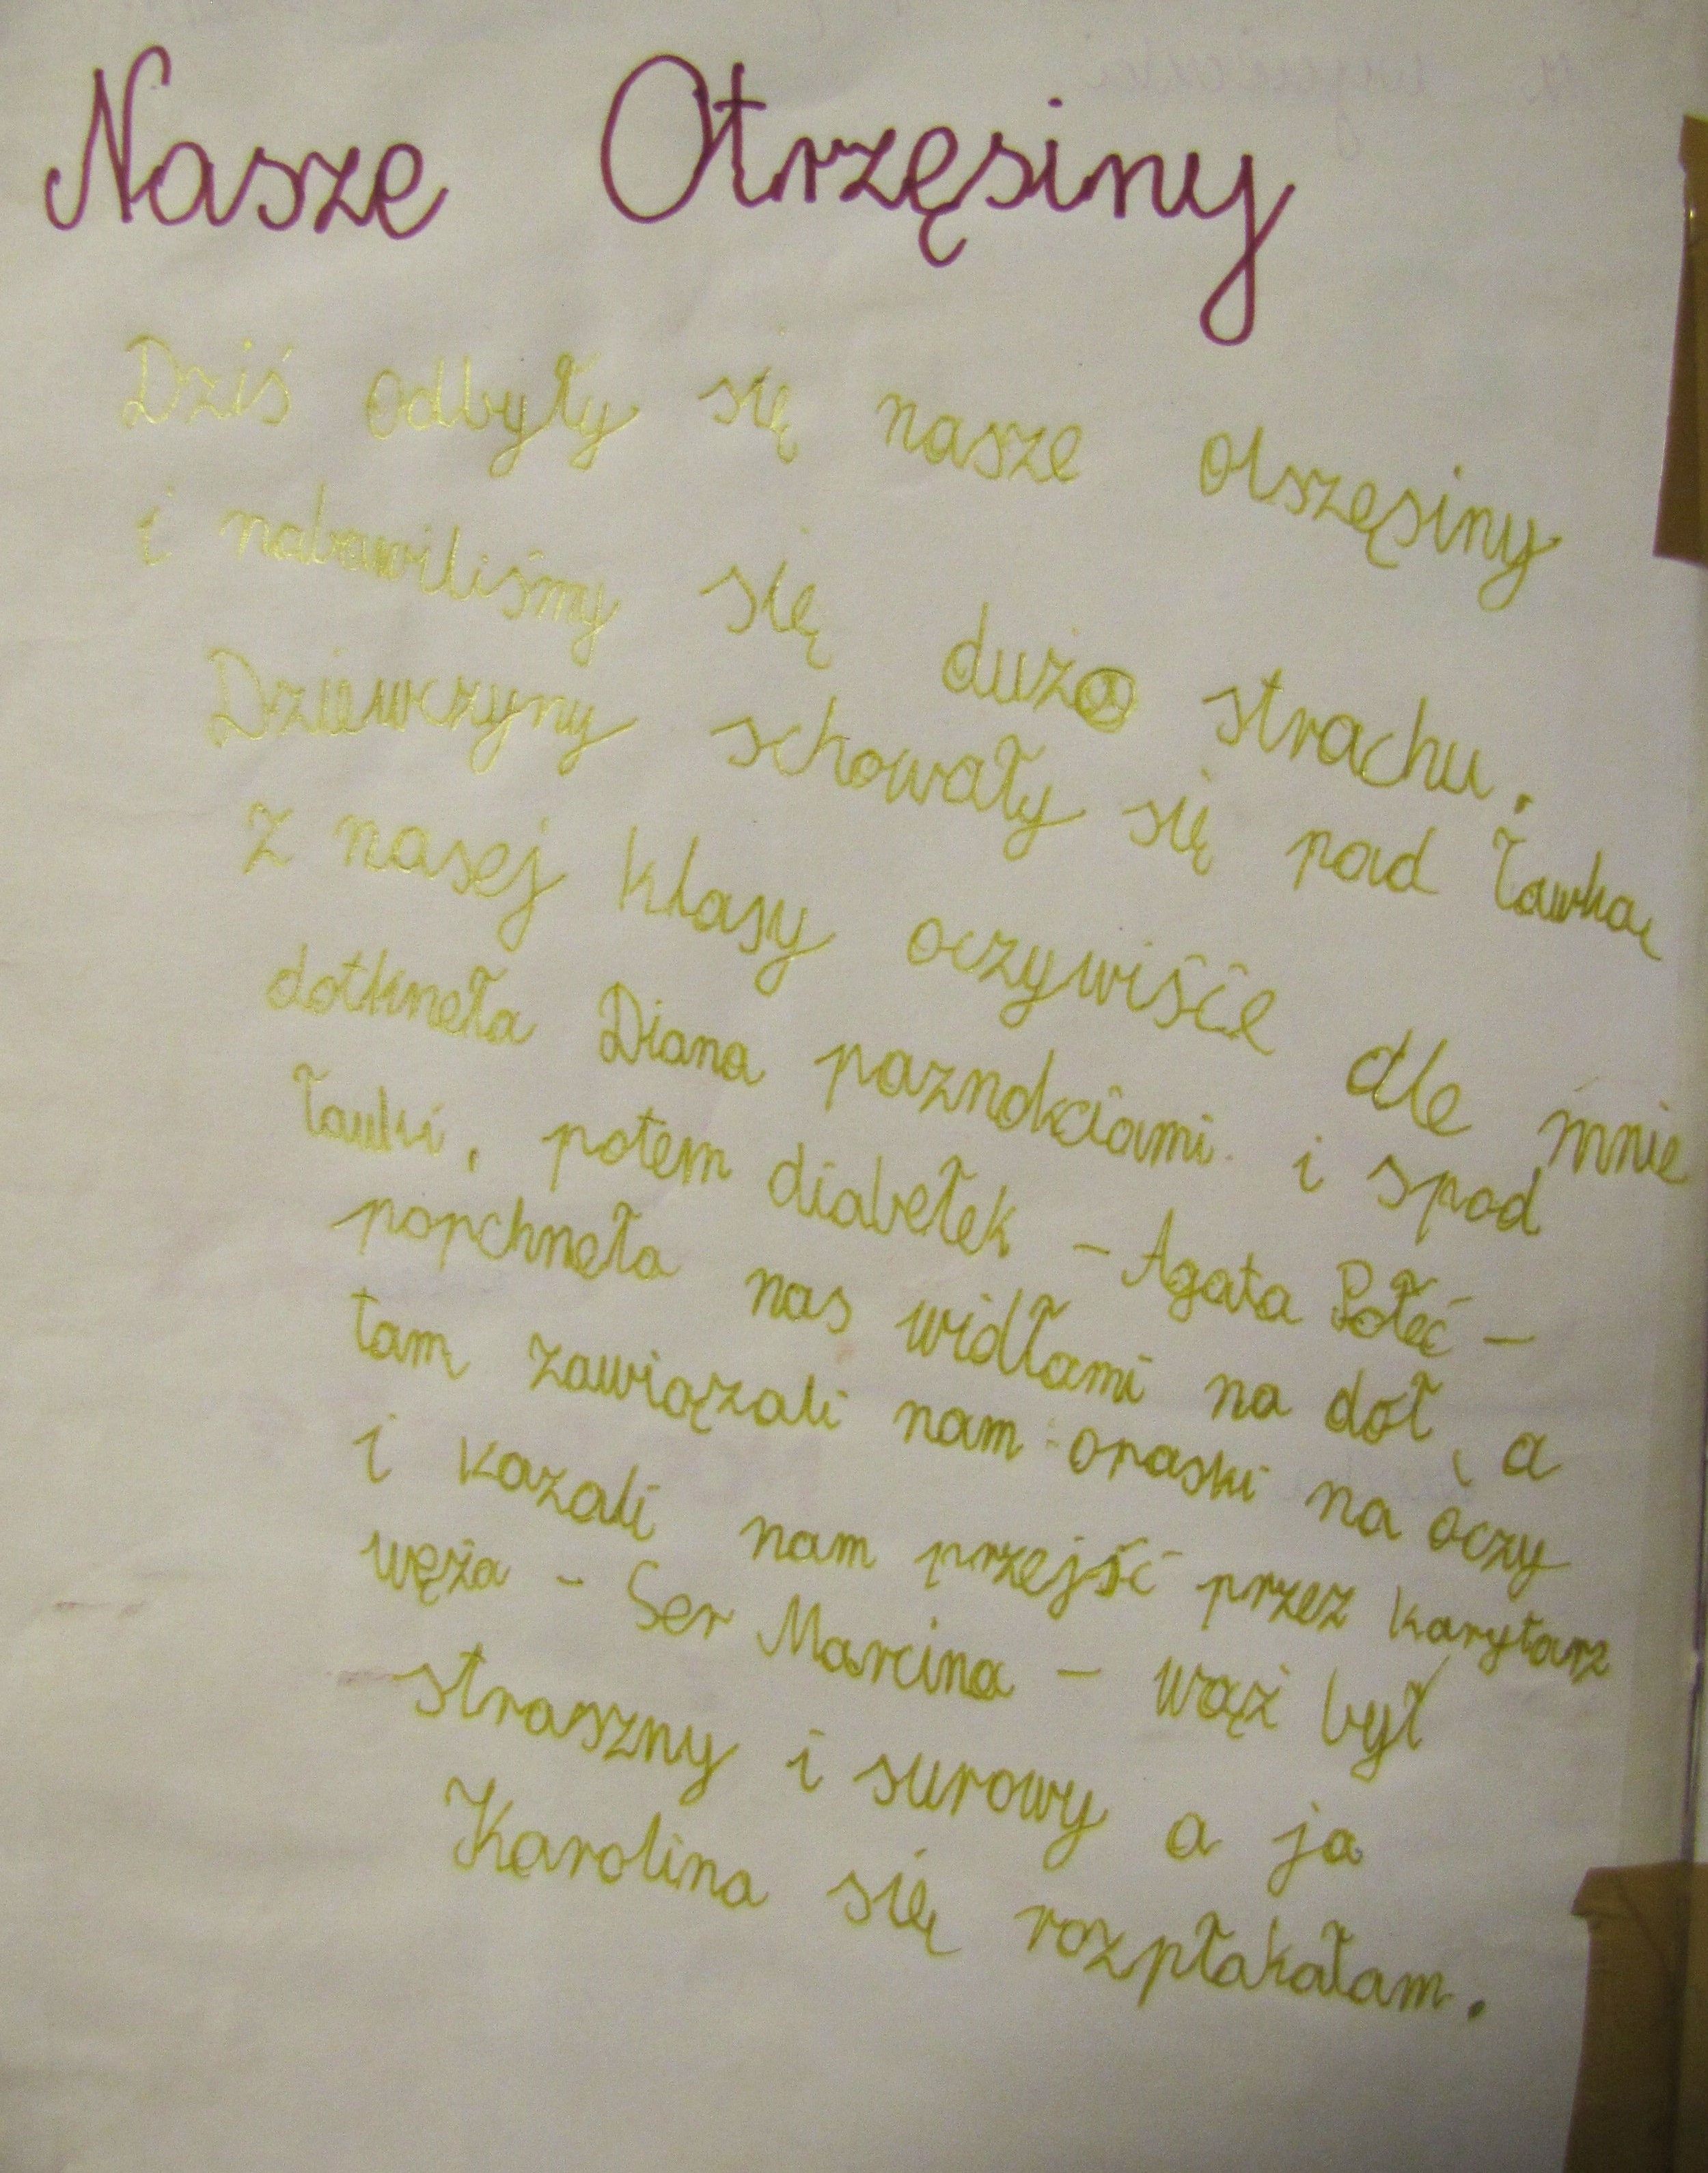 Nasze Otrzęsiny
Dziś odbyły się nasze otszęsiny
i nabawiliśmy się dużo strachu.
Dziewczyny schowały się pod ławką
z nasej klasy oczywiśće dle mnie
dotkneła Diana paznokciami i spod
ławki, potem diabełek - Agata Połeć -
popchneła nas widłami na dół, a
tam zawiązali nam opaski na oczy
i kazali nam przejść przez karytarz
węża - Ser Marcina - wąż był
straszny i surowy a ja
Karolina się rozpłakałam.